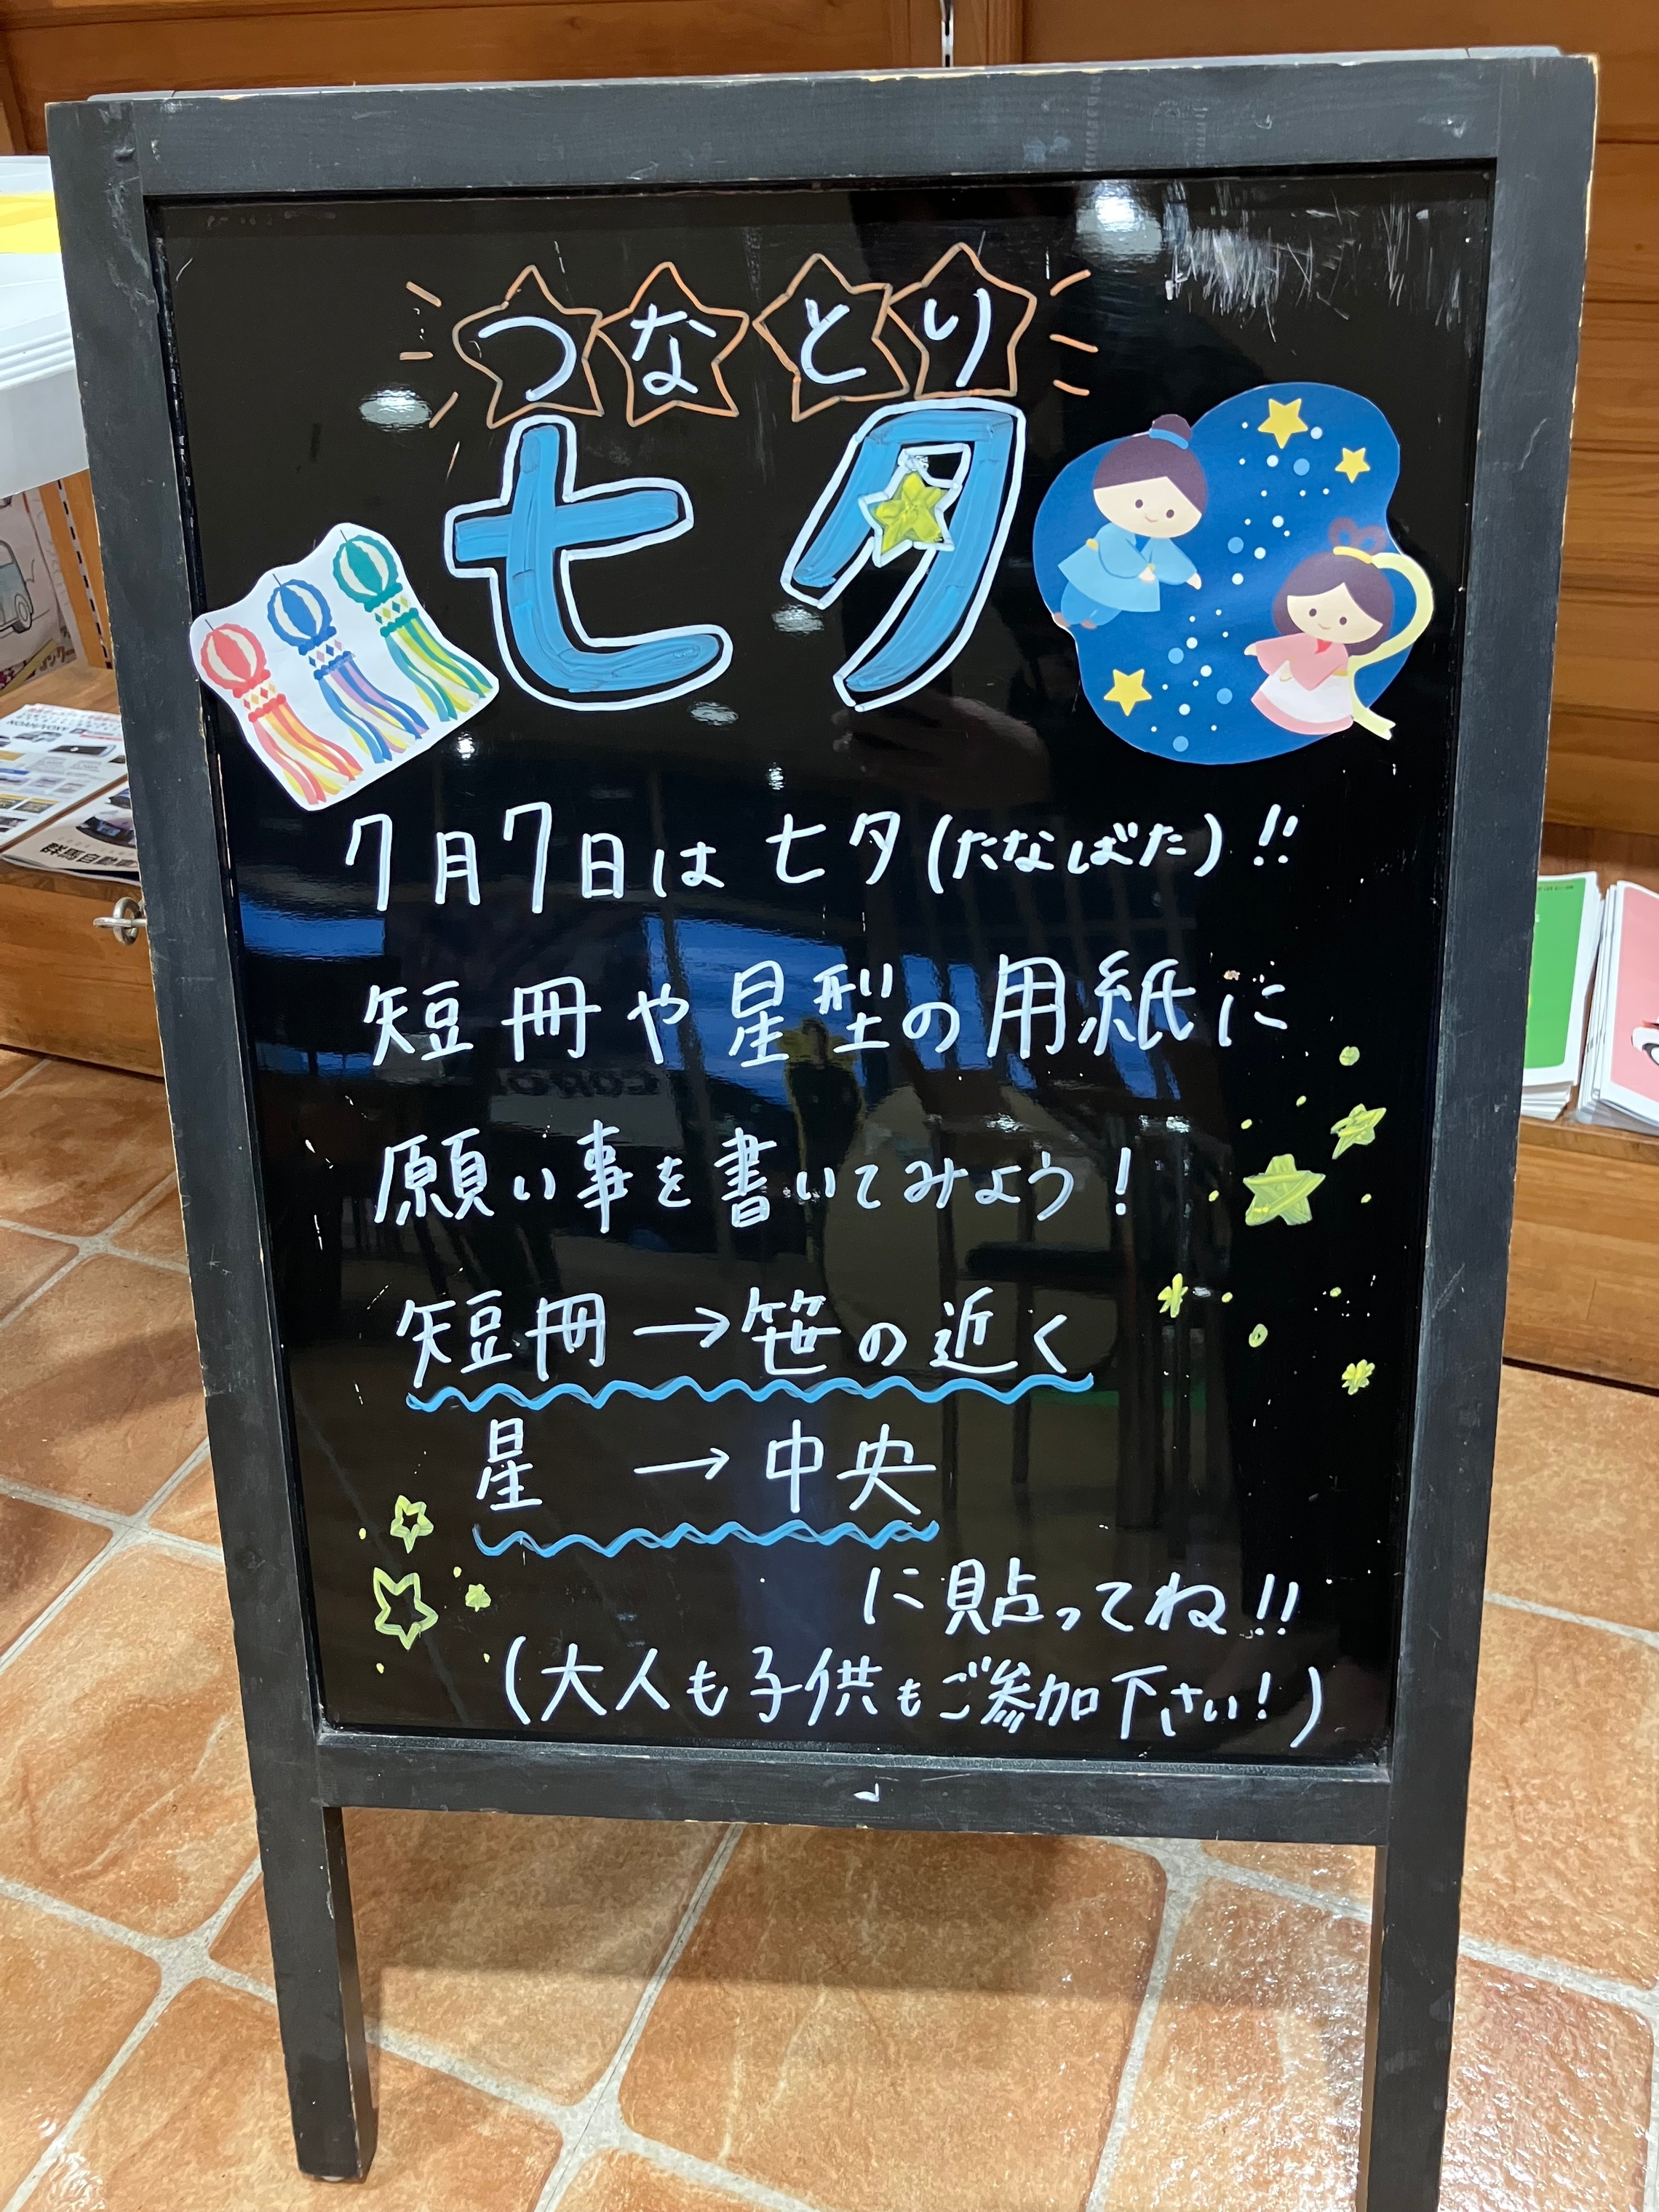 つなとり
七夕
7月7日は七夕(たなばた)!!
短冊や星型の用紙に
願い事を書いてみよう!
短冊→笹の近く
星　→中央
に貼ってね!!
(大人も子供もご参加下さい!)